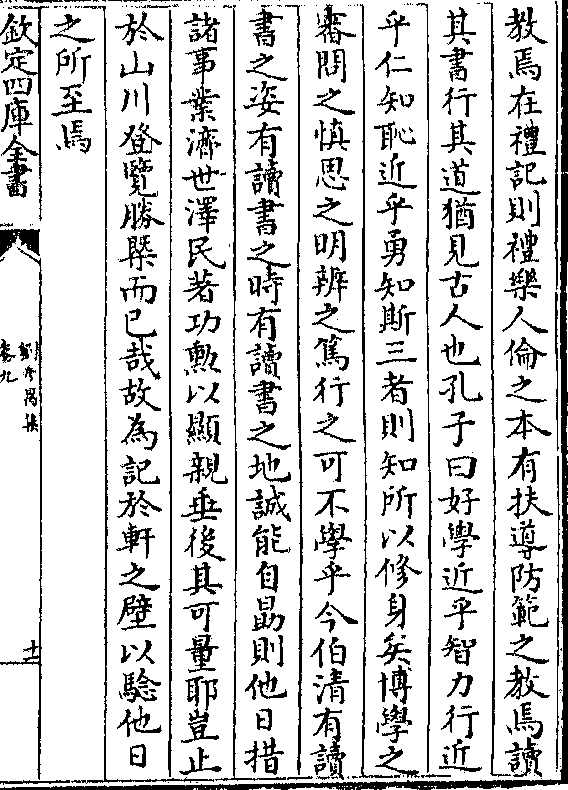 教焉在禮記則禮樂人倫之本有扶導防範之教焉讀
其書行其道猶見古人也孔子曰好學近乎智力行近
乎仁知恥近乎勇知斯三者則知所以修身矣博學之
審問之慎思之明辨之篤行之可不學乎今伯清有讀
書之姿有讀書之時有讀書之地誠能自勗則他日措
諸事業濟世澤民著功勲以顯親垂後其可量耶豈止
於山川登覽勝槩而已哉故為記於軒之壁以驗他日
之所至焉
欽定四庫全書
卷九
十二